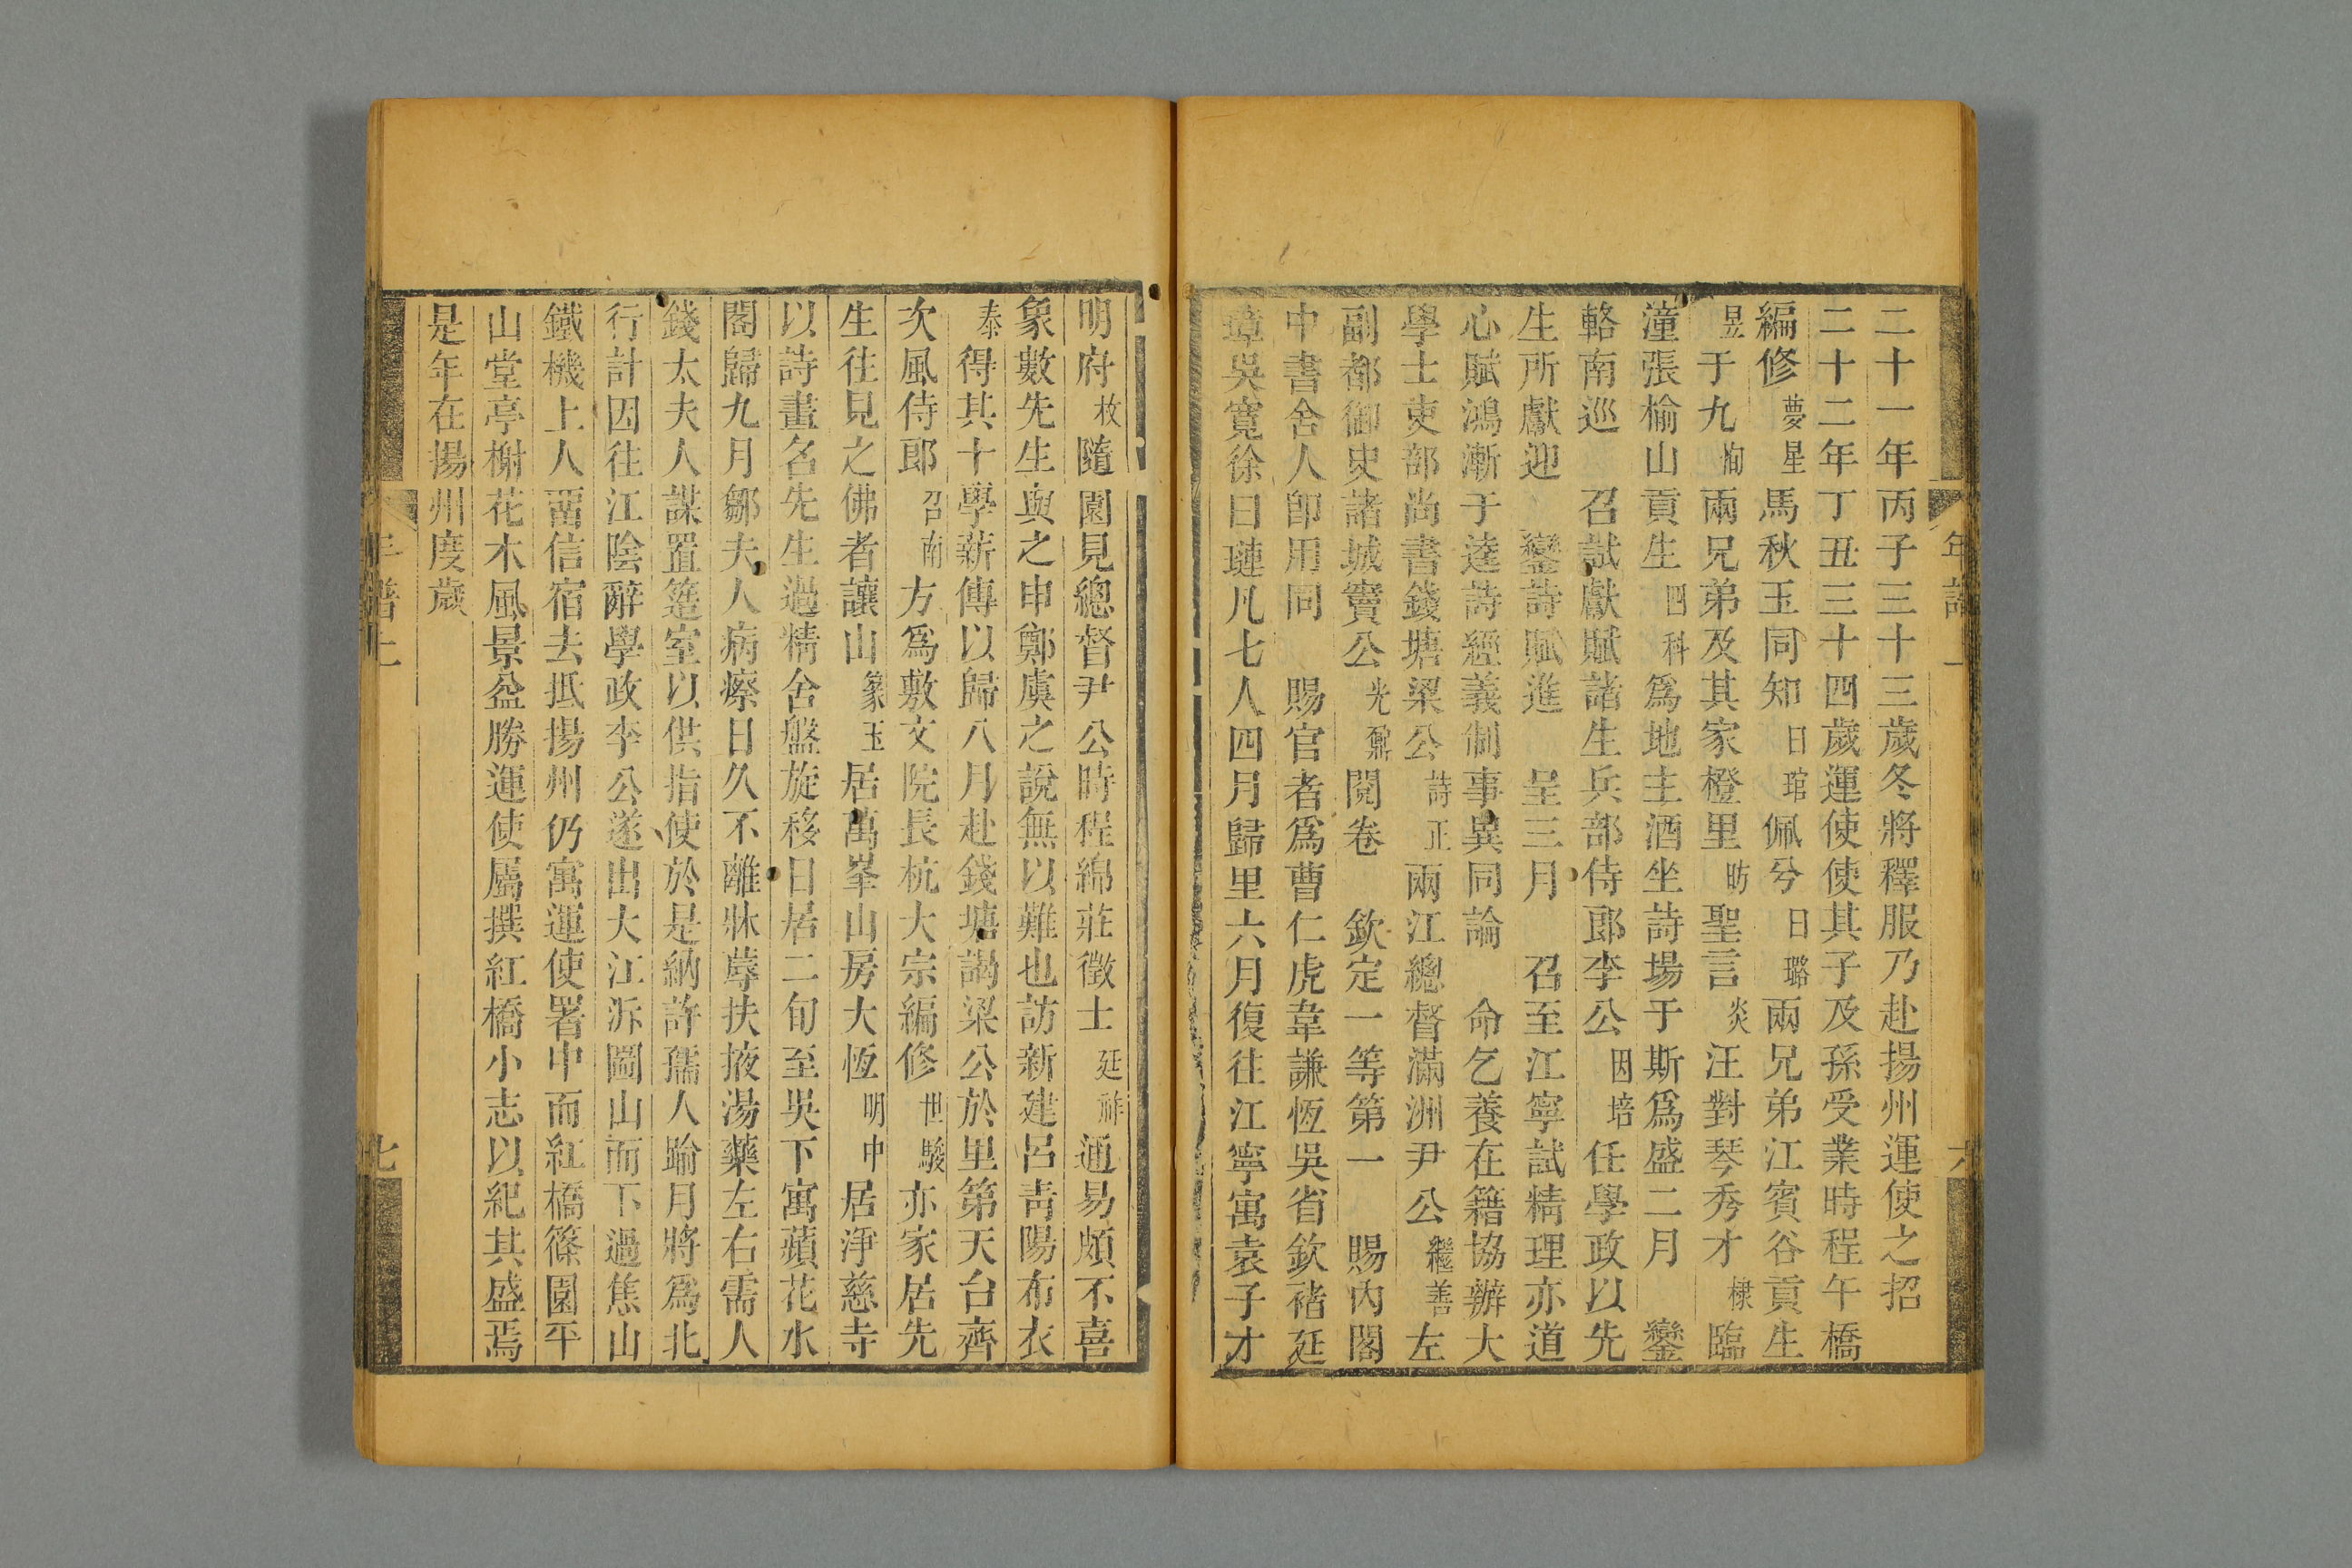 二十一年丙子三十三歲冬將釋服乃赴揚州運使之招
二十二年丁丑三十四歲運使使其子及孫受業時程午橋
編修夢星馬秋玉同知日琯佩兮日璐兩兄弟江賓谷貢生
昱于九恂兩兄弟及其家橙里昉聖言炎汪對琴秀才棣臨
潼張榆山貢生四科爲地主酒坐詩場于斯爲盛二月 鑾
輅南巡 召試獻賦諸生兵部侍郎李公因培任學政以先
生所獻迎 鑾詩賦進 呈三月 召至江寧試精理亦道
心賦鴻漸于逵詩經義制事異同論 命乞養在籍協辦大
學士吏部尚書錢塘梁公詩正兩江總督滿洲尹公繼善左
副都御史諸城竇公光鼐閱卷 欽定一等第一 賜內閣
中書舍人卽用同 賜官者爲曹仁虎韋謙恆吳省欽褚廷
璋吳寬徐曰璉凡七人四月歸里六月復往江寧寓袁子才
明府枚隨園見總督尹公時程綿莊徵士廷祚通易頗不喜
象數先生與之申鄭虞之說無以難也訪新建呂靑陽布衣
泰得其十學薪傳以歸八月赴錢塘謁梁公於里第天台齊
次風侍郎召南方爲敷文院長杭大宗編修世駿亦家居先
生往見之佛者讓山篆玉居萬峯山房大恆明中居淨慈寺
以詩畫名先生過精舍盤旋移日居二旬至吳下寓蘋花水
閣歸九月鄒夫人病瘵日久不離牀蓐扶掖湯藥左右需人
錢太夫人謀置簉室以供指使於是納許孺人踰月將爲北
行計因往江陰辭學政李公遂出大江泝圌山而下過焦山
鐵機上人畱信宿去抵揚州仍寓運使署中而紅橋篠園平
山堂亭榭花木風景益勝運使屬撰紅橋小志以紀其盛焉
是年在揚州度歲
年譜上
六
年譜上
七